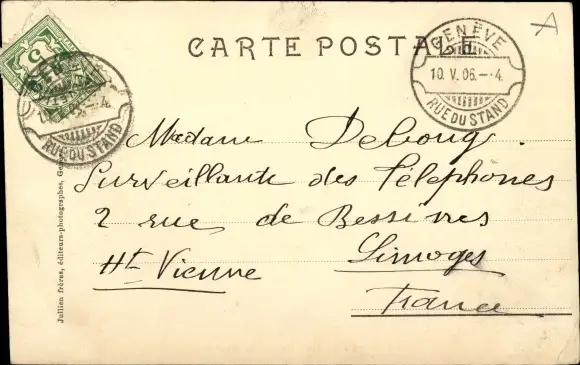 CARTE POSTALE
5
GENÈVE
10. V. 06.—·4.
RUE DU STAND
RUE DU STAND
Madame Deboug
Surveillante des Téléphones
2 rue de Bessines
Hte Vienne Limoges
France
Jullien frères, éditeurs-photographes, Ge
A